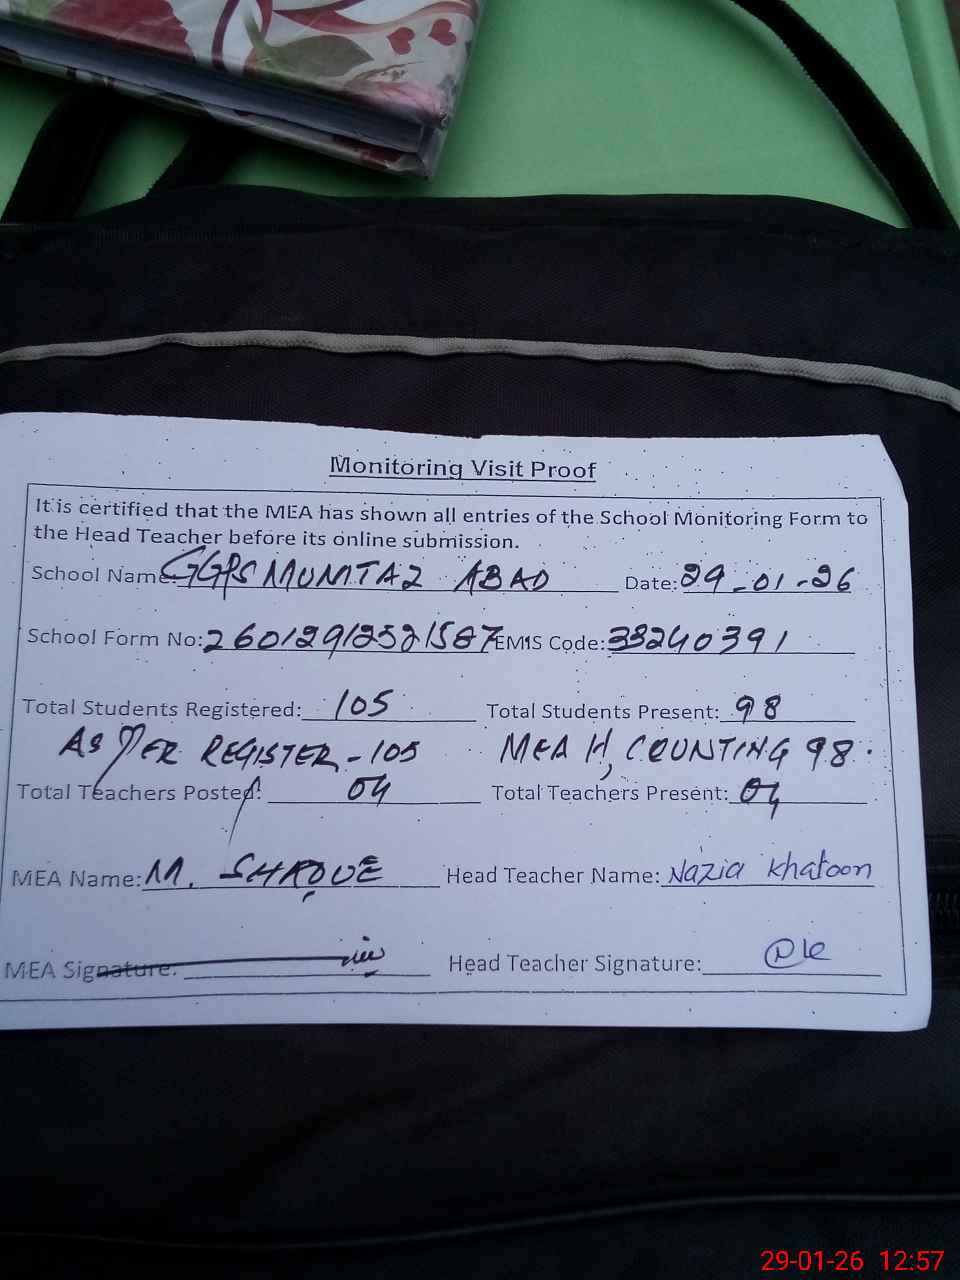 Monitoring Visit Proof
It is certified that the MEA has shown all entries of the School Monitoring Form to
the Head Teacher before its online submission.
School Name: GGPS MUMTAZ ABAD Date: 29-01-26
School Form No: EMIS Code: 33240391
Total Students Registered: 105 Total Students Present: 98
AS PER REGISTER - 105 MEA H, COUNTING 98.
Total Teachers Posted: 04 Total Teachers Present: 04
MEA Name: M. Head Teacher Name: Nazia Khatoon
MEA Signature: Head Teacher Signature:
29-01-26 12:57